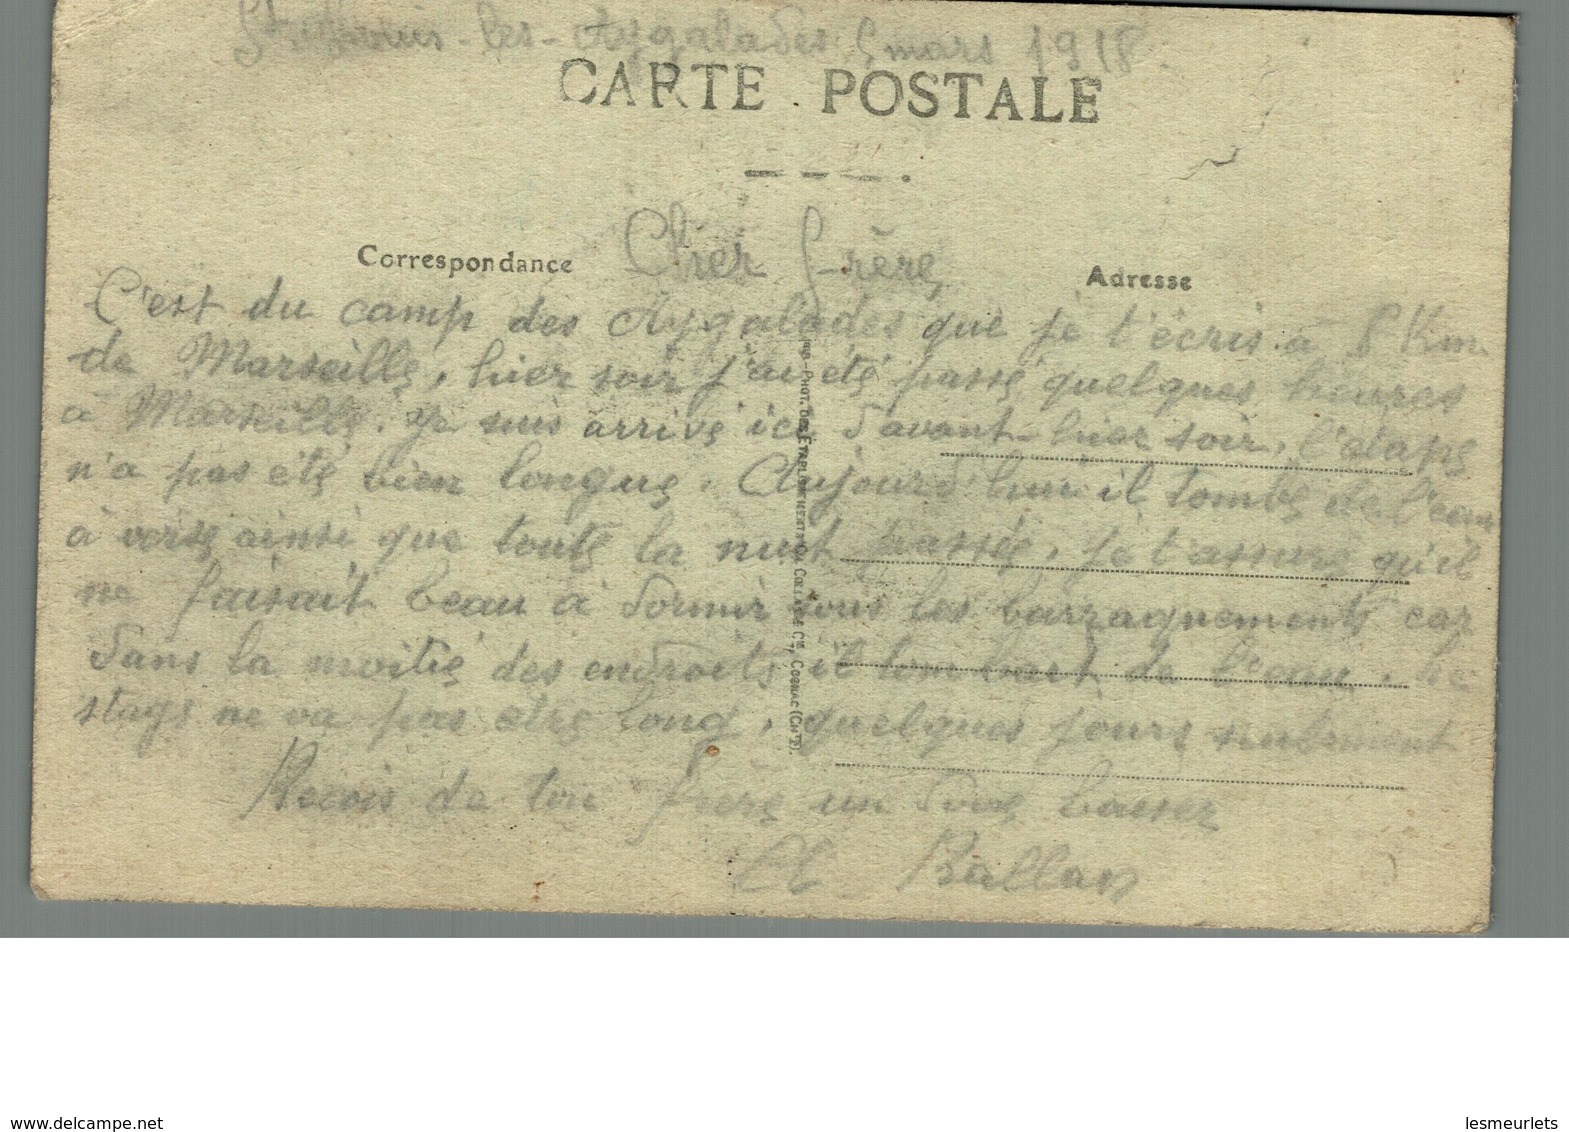 -les-Aygalades 5 mars 1918.
CARTE POSTALE
Correspondance
Cher frère
Adresse
C'est du camp des Aygalades que je t'écris à 8 Km
de Marseille, hier soir j'ai été passé quelques heures
à Marseille. Je suis arrivé ici d'avant-hier soir, l'étape
n'a pas été bien longue. Aujourd'hui il tombe de l'eau
à verse ainsi que toute la nuit passée, je t'assure qu'il
ne faisait beau à dormir sous les barraquements car
dans la moitié des endroits il tombait de l'eau. Le
stage ne va pas être long, quelques jours seulement
Recois de ton frère un doux baiser
Ballan
Phot. des Etablissements Collas & Cie, Cognac (Chte).
www.delcampe.net
lesmeurlets